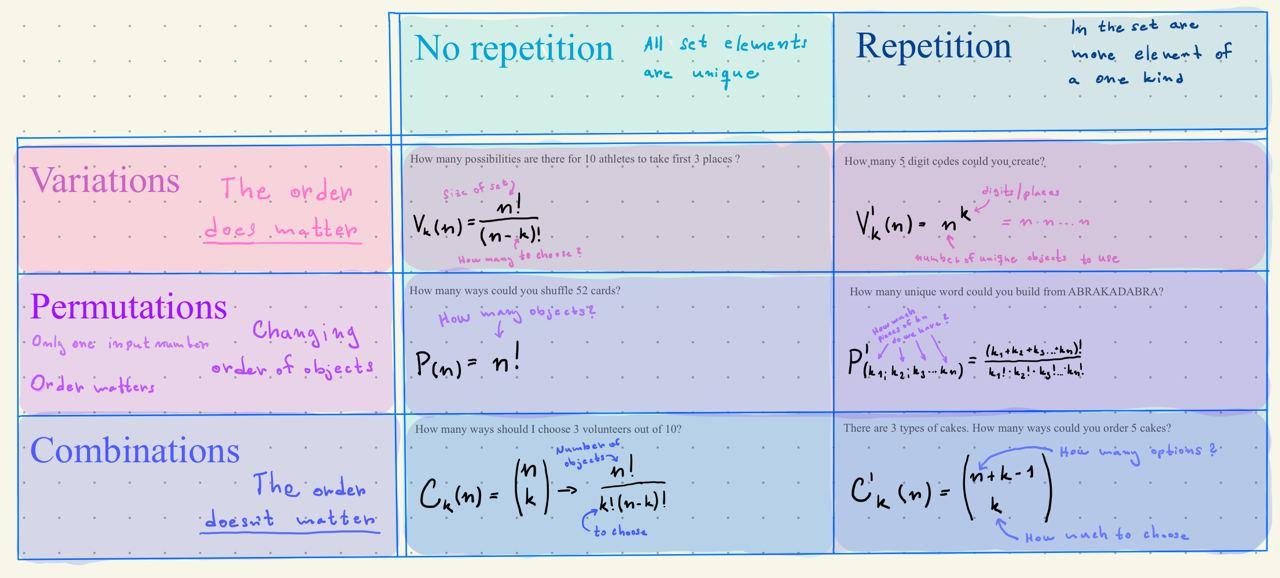 No repetition
All set elements
are unique
Repetition
In the set are
more element of
a one kind
Variations
The order
does matter
How many possibilities are there for 10 athletes to take first 3 places ?
Size of set
Vₖ(n) = n! / (n-k)!
How many to choose?
How many 5 digit codes could you create?
digits/places
V'ₖ(n) = nᵏ = n·n·...n
number of unique objects to use
Permutations
Only one input number
Order matters
Changing
order of objects
How many ways could you shuffle 52 cards?
How many objects?
P(n) = n!
How many unique word could you build from ABRAKADABRA?
How much
do we have?
P'(k₁; k₂; k₃ ... kₙ) = (k₁+k₂+k₃...+kₙ)! / k₁!·k₂!·k₃!...kₙ!
Combinations
The order
doesn't matter
How many ways should I choose 3 volunteers out of 10?
Number of
objects
Cₖ(n) = (n k) → n! / k!(n-k)!
to choose
There are 3 types of cakes. How many ways could you order 5 cakes?
How many options?
C'ₖ(n) = (n+k-1 k)
How much to choose